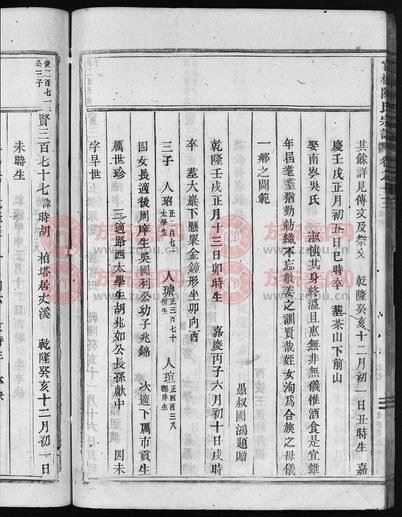 其餘詳見傳文及祭文 乾隆癸亥十二月初一日丑時生 嘉
慶壬戌正月初五日巳時卒 墓茶山下前山
娶南岑吳氏 淑慎其身終溫且惠無非無儀惟酒食是宜雖
年屆耄耋猶勤紡織不忘敬姜之訓賢哉姪女洵爲合族之母儀
一鄉之閫範
愚叔國鴻題贈
乾隆壬戌正月十三日卯時生 嘉慶丙子六月初十日戌時
卒 墓大巖下懸梁金鐘形坐卯向酉
三子 人玿正一百七一太學生 人 正三百七十 人 正四百三八
四女長適後周庠生吳國利公幼子兆錦 次適下厲市貢生
厲世珍 三適路西太學生胡兆如公長孫獻中 四未
字早世
使一百七一公三子
賢三百七十七諱時胡 柏塔居丈溪 乾隆癸亥十二月初一日
未時生